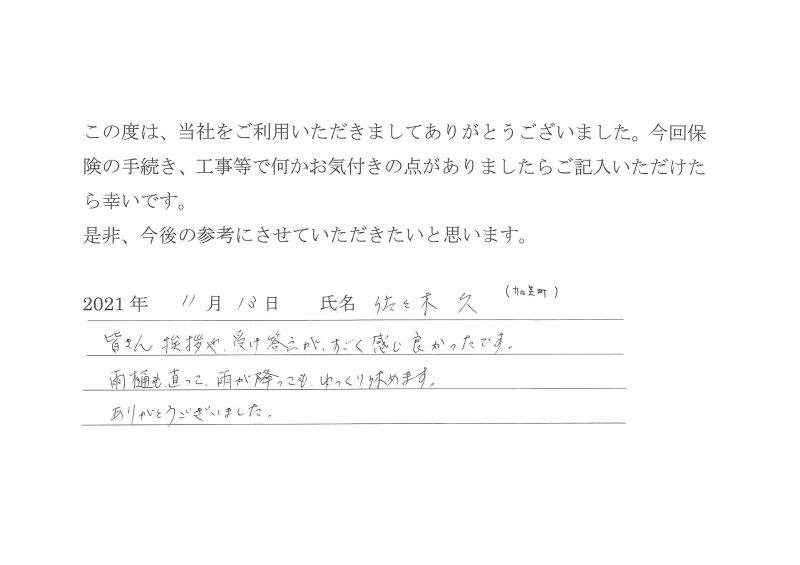 この度は、当社をご利用いただきましてありがとうございました。今回保
険の手続き、工事等で何かお気付きの点がありましたらご記入いただけた
ら幸いです。
是非、今後の参考にさせていただきたいと思います。
2021年 11月 13日 氏名 佐々木 久 (加美町)
皆さん 挨拶や、受け答えが、すごく感じ良かったです。
雨樋も、直って、雨が降っても、ゆっくり休めます。
ありがとうございました。